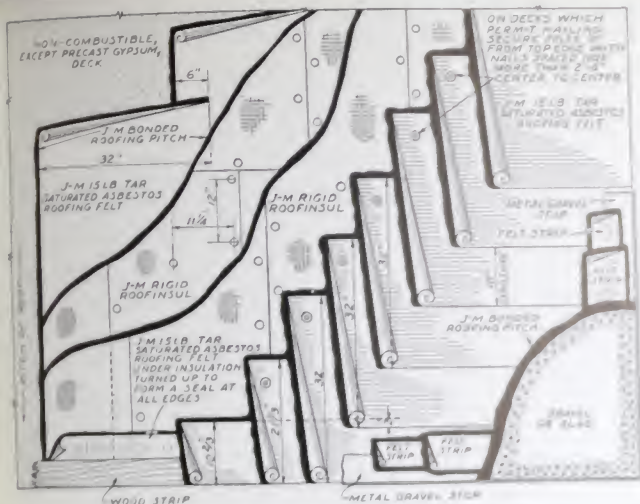 NON-COMBUSTIBLE,
EXCEPT PRECAST GYPSUM,
DECK
6"
J-M BONDED
ROOFING PITCH
32"
J-M 15LB TAR
SATURATED ASBESTOS
ROOFING FELT
12"
11¼
J-M RIGID
ROOFINSUL
J-M RIGID
ROOFINSUL
J-M 15LB TAR
SATURATED ASBESTOS
ROOFING FELT
UNDER INSULATION
TURNED UP TO
FORM A SEAL AT
ALL EDGES
WOOD STRIP
ON DECKS WHICH
PERMIT NAILING
SECURE FELTS
FROM TOP EDGE WITH
NAILS SPACED NOT
MORE THAN
CENTER TO CENTER
J-M 15LB TAR
SATURATED ASBESTOS
ROOFING FELT
METAL GRAVEL
STRIP
FELT STRIP
FELT
STRIP
J-M BONDED
ROOFING PITCH
GRAVEL
OR SLAG
32"
32"
21⅓
10⅔
FELT
STRIP
FELT
STRIP
METAL GRAVEL STOP